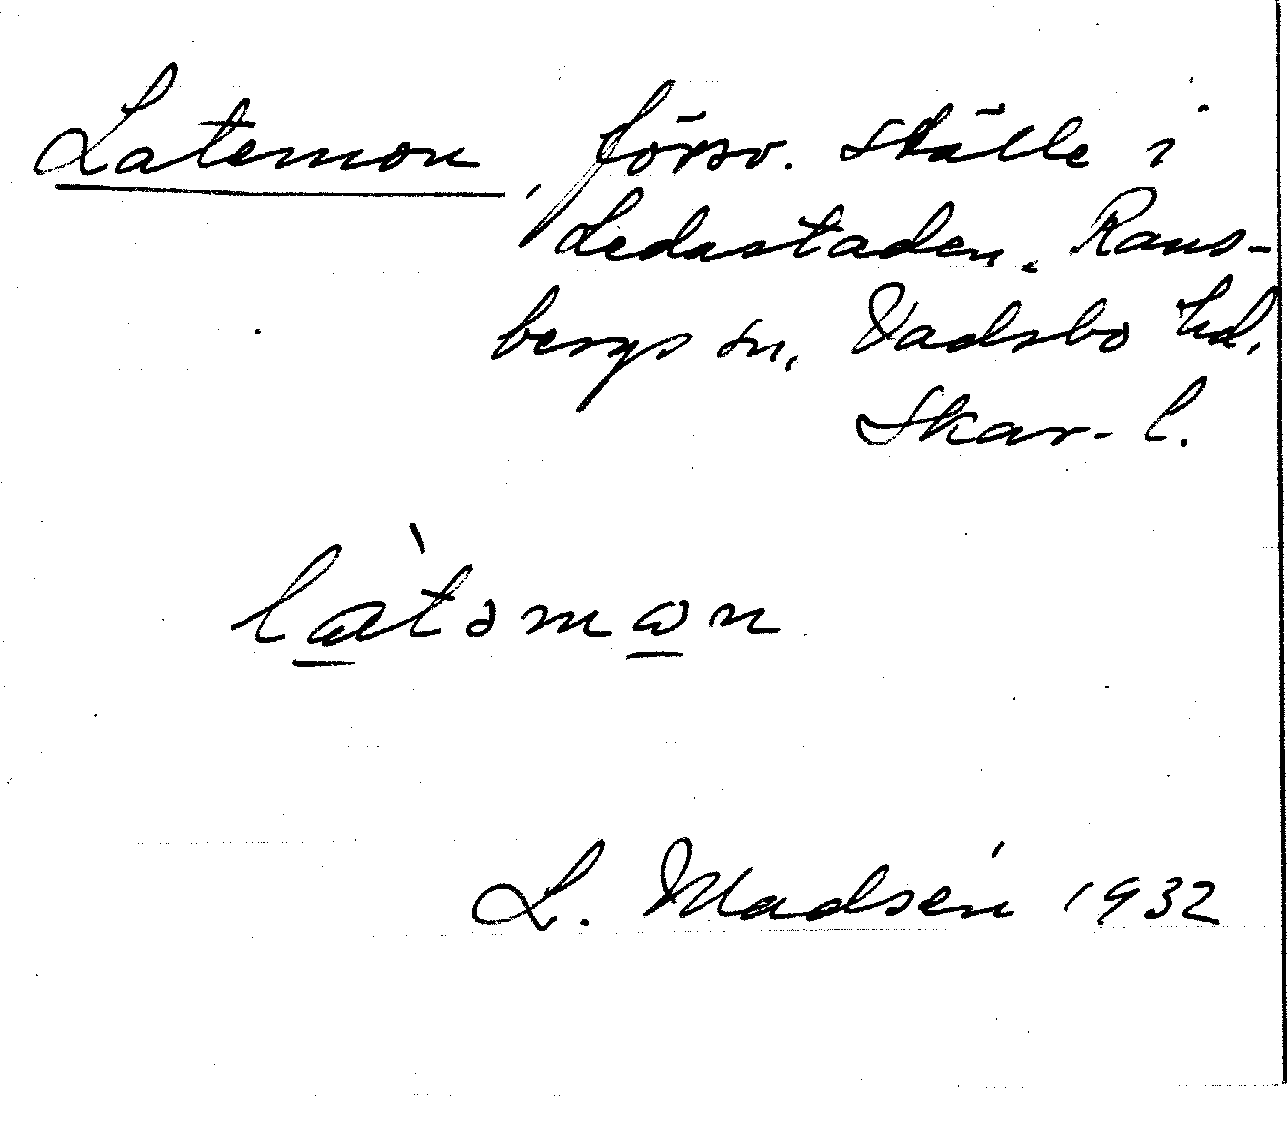 Latemon, försv. ställe i
Ledastaden, Rans-
bergs sn, Vadsbo hd,
Skar. l.
là̱təma̱n
L. Madsén 1932